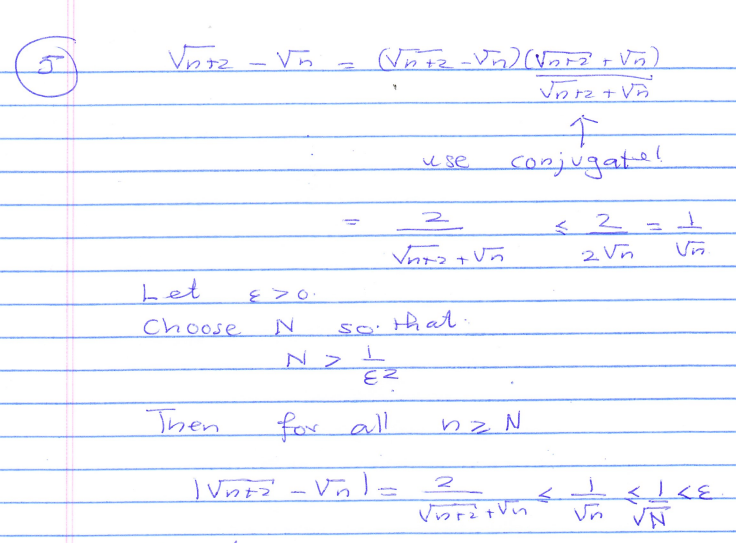 5 √n+2 - √n = (√n+2 - √n) (√n+2 + √n) / √n+2 + √n
↑
use conjugate!
= 2 / √n+2 + √n ≤ 2 / 2√n = 1 / √n
Let ε > 0.
Choose N so that.
N > 1 / ε2
Then for all n ≥ N
|√n+2 - √n| = 2 / √n+2 + √n ≤ 1 / √n ≤ 1 / √N < ε.